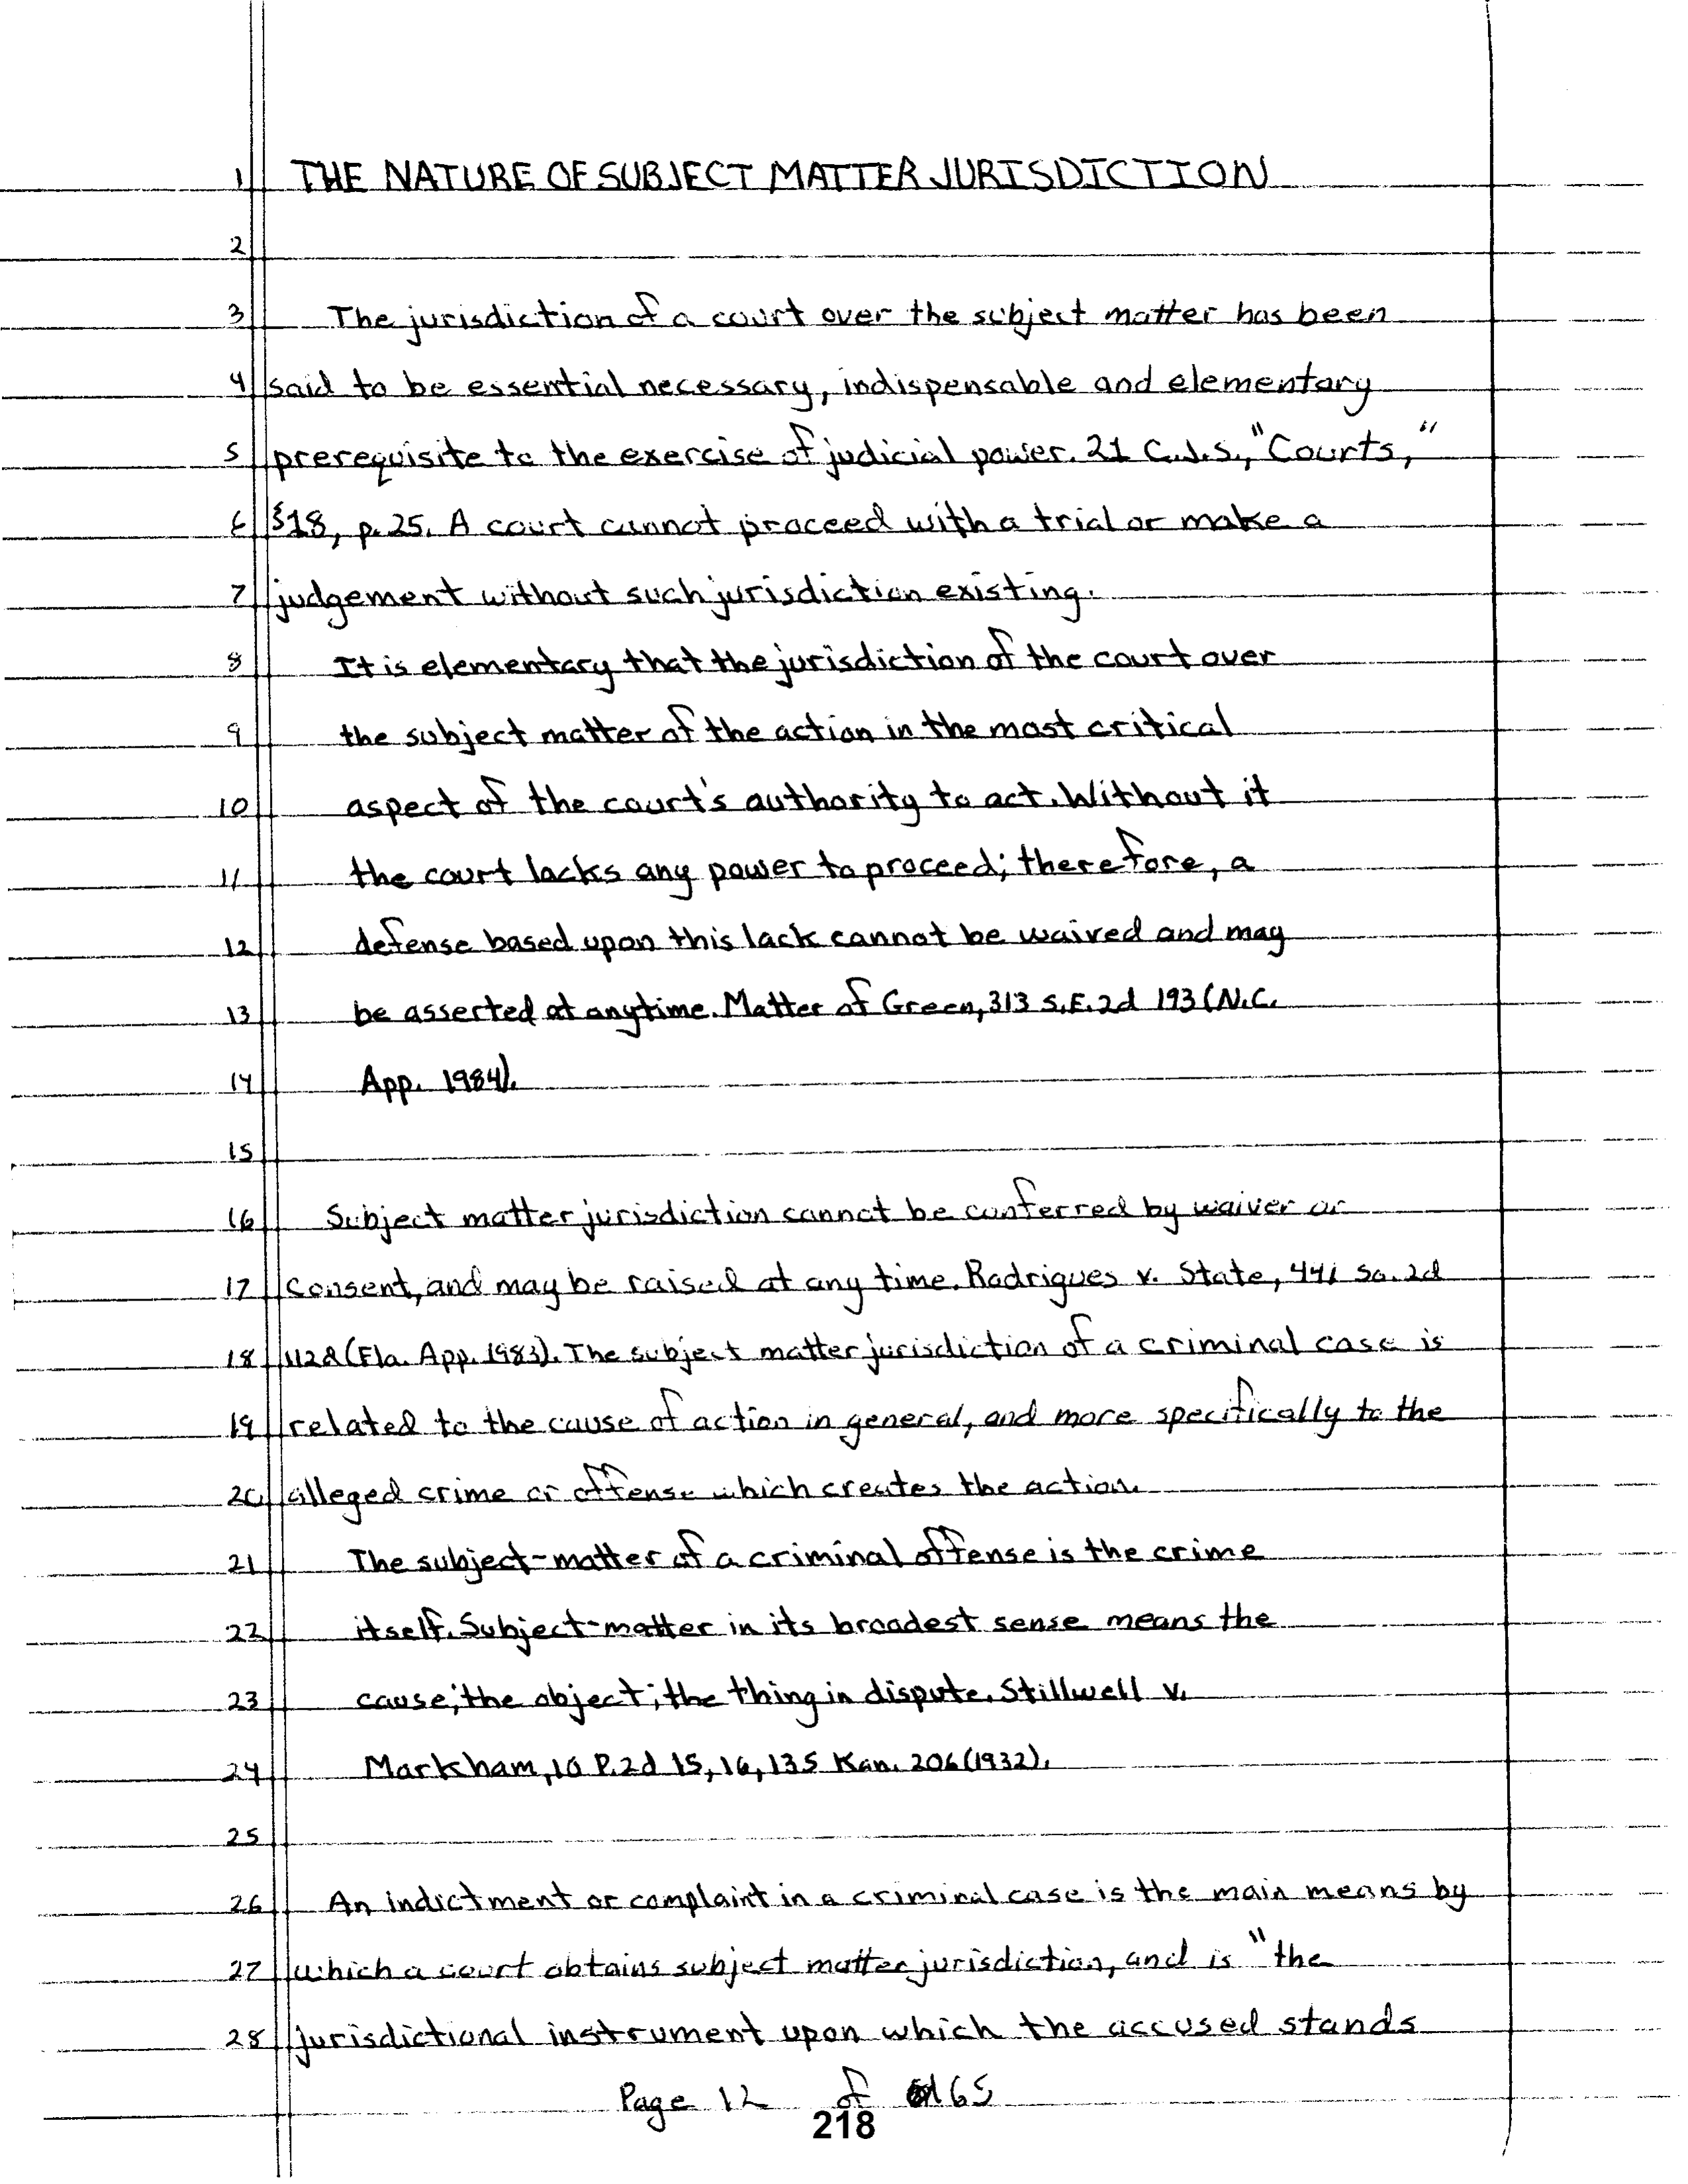 1 THE NATURE OF SUBJECT MATTER JURISDICTION
2
3 The jurisdiction of a court over the subject matter has been
4 said to be essential necessary, indispensable and elementary
5 prerequisite to the exercise of judicial power. 21 C.J.S., "Courts,"
6 §18, p. 25. A court cannot proceed with a trial or make a
7 judgement without such jurisdiction existing.
8 It is elementary that the jurisdiction of the court over
9 the subject matter of the action in the most critical
10 aspect of the court's authority to act. Without it
11 the court lacks any power to proceed; therefore, a
12 defense based upon this lack cannot be waived and may
13 be asserted at anytime. Matter of Green, 313 S.E.2d 193 (N.C.
14 App. 1984).
15
16 Subject matter jurisdiction cannot be conferred by waiver or
17 consent, and may be raised at any time. Rodrigues v. State, 441 So. 2d
18 1128 (Fla. App. 1983). The subject matter jurisdiction of a criminal case is
19 related to the cause of action in general, and more specifically to the
20 alleged crime or offense which creates the action.
21 The subject-matter of a criminal offense is the crime
22 itself. Subject-matter in its broadest sense means the
23 cause; the object; the thing in dispute. Stillwell v.
24 Markham, 10 P.2d 15, 16, 135 Kan. 206 (1932).
25
26 An indictment or complaint in a criminal case is the main means by
27 which a court obtains subject matter jurisdiction, and is "the
28 jurisdictional instrument upon which the accused stands
Page 12 of 165
218